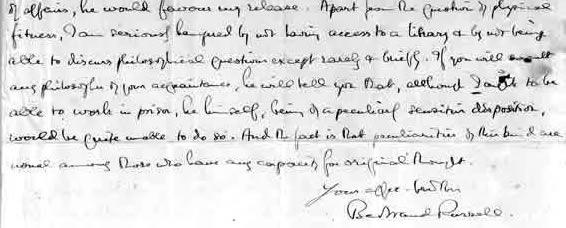 of affairs, he would favour my release. Apart from the question of physical
fitness, I am seriously hampered by not having access to a library & by not being
able to discuss philosophical questions except rarely & briefly. If you will consult
any philosopher of your acquaintance, he will tell you that, although I ought to be
able to work in prison, he himself, being of a peculiarly sensitive disposition,
would be quite unable to do so. And the fact is that peculiarities of this kind are
usual among those who have any capacity for original thought.
Your affte. brother
Bertrand Russell.